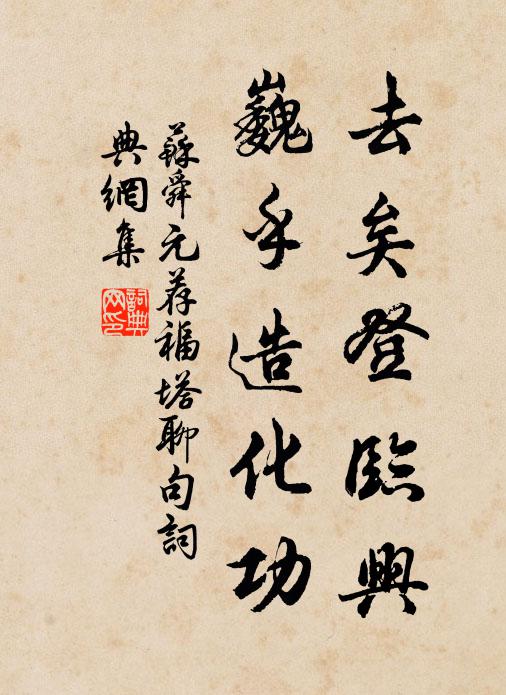 去矣登臨興
巍乎造化功
蘇舜元荐福塔聊句詞
典網集
詞典網印